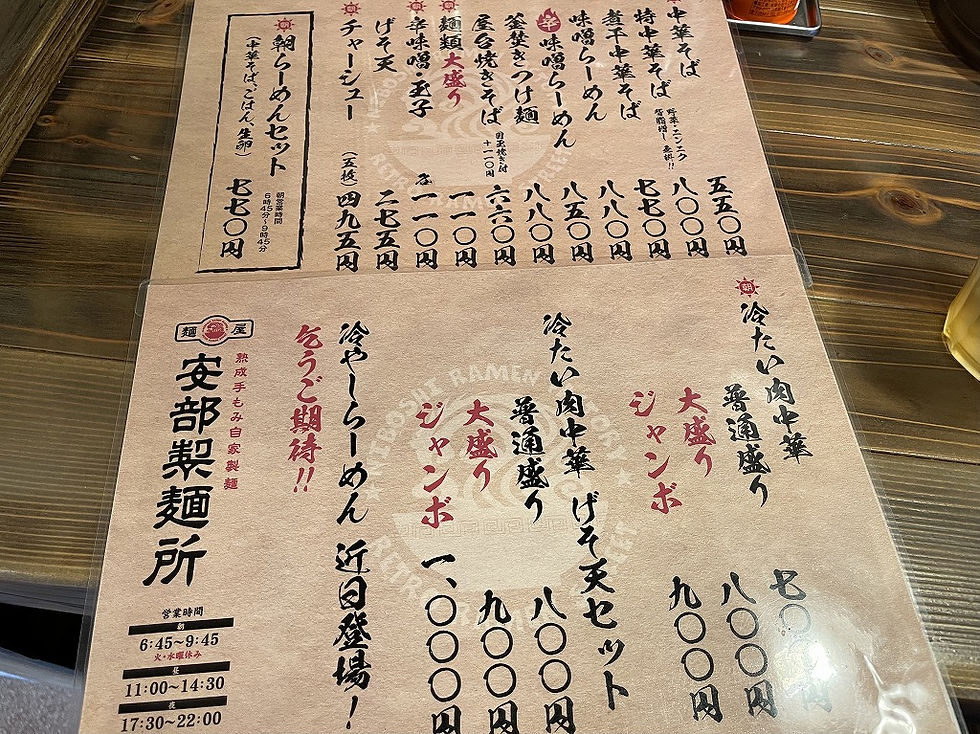 朝 中華そば 五五〇円
特中華そば 八〇〇円
野菜・ニンニク
背脂増し 無料!!
煮干中華そば 七七〇円
味噌らーめん 八八〇円
辛 味噌らーめん 八五〇円
釜焚きつけ麺 八八〇円
屋台焼きそば 六六〇円
目玉焼き付
+一一〇円
朝 麺類大盛り 一一〇円
朝 辛味噌・玉子 各一一〇円
げそ天 二七五円
朝 チャーシュー (五枚) 四九五円
朝 朝らーめんセット
(中華そば、ごはん、生卵)
朝営業時間
6時45分~9時45分
七七〇円
朝 冷たい肉中華
普通盛り 七〇〇円
大盛り 八〇〇円
ジャンボ 九〇〇円
冷たい肉中華 げそ天セット
普通盛り 八〇〇円
大盛り 九〇〇円
ジャンボ 一、〇〇〇円
冷やしらーめん 近日登場!
乞うご期待!!
熟成手もみ自家製麺
麺屋
安部製麺所
営業時間
朝
6:45~9:45
火・水曜休み
昼
11:00~14:30
夜
17:30~22:00